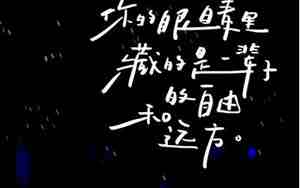 你的眼睛里
藏的是一辈子
的自由
和远方。